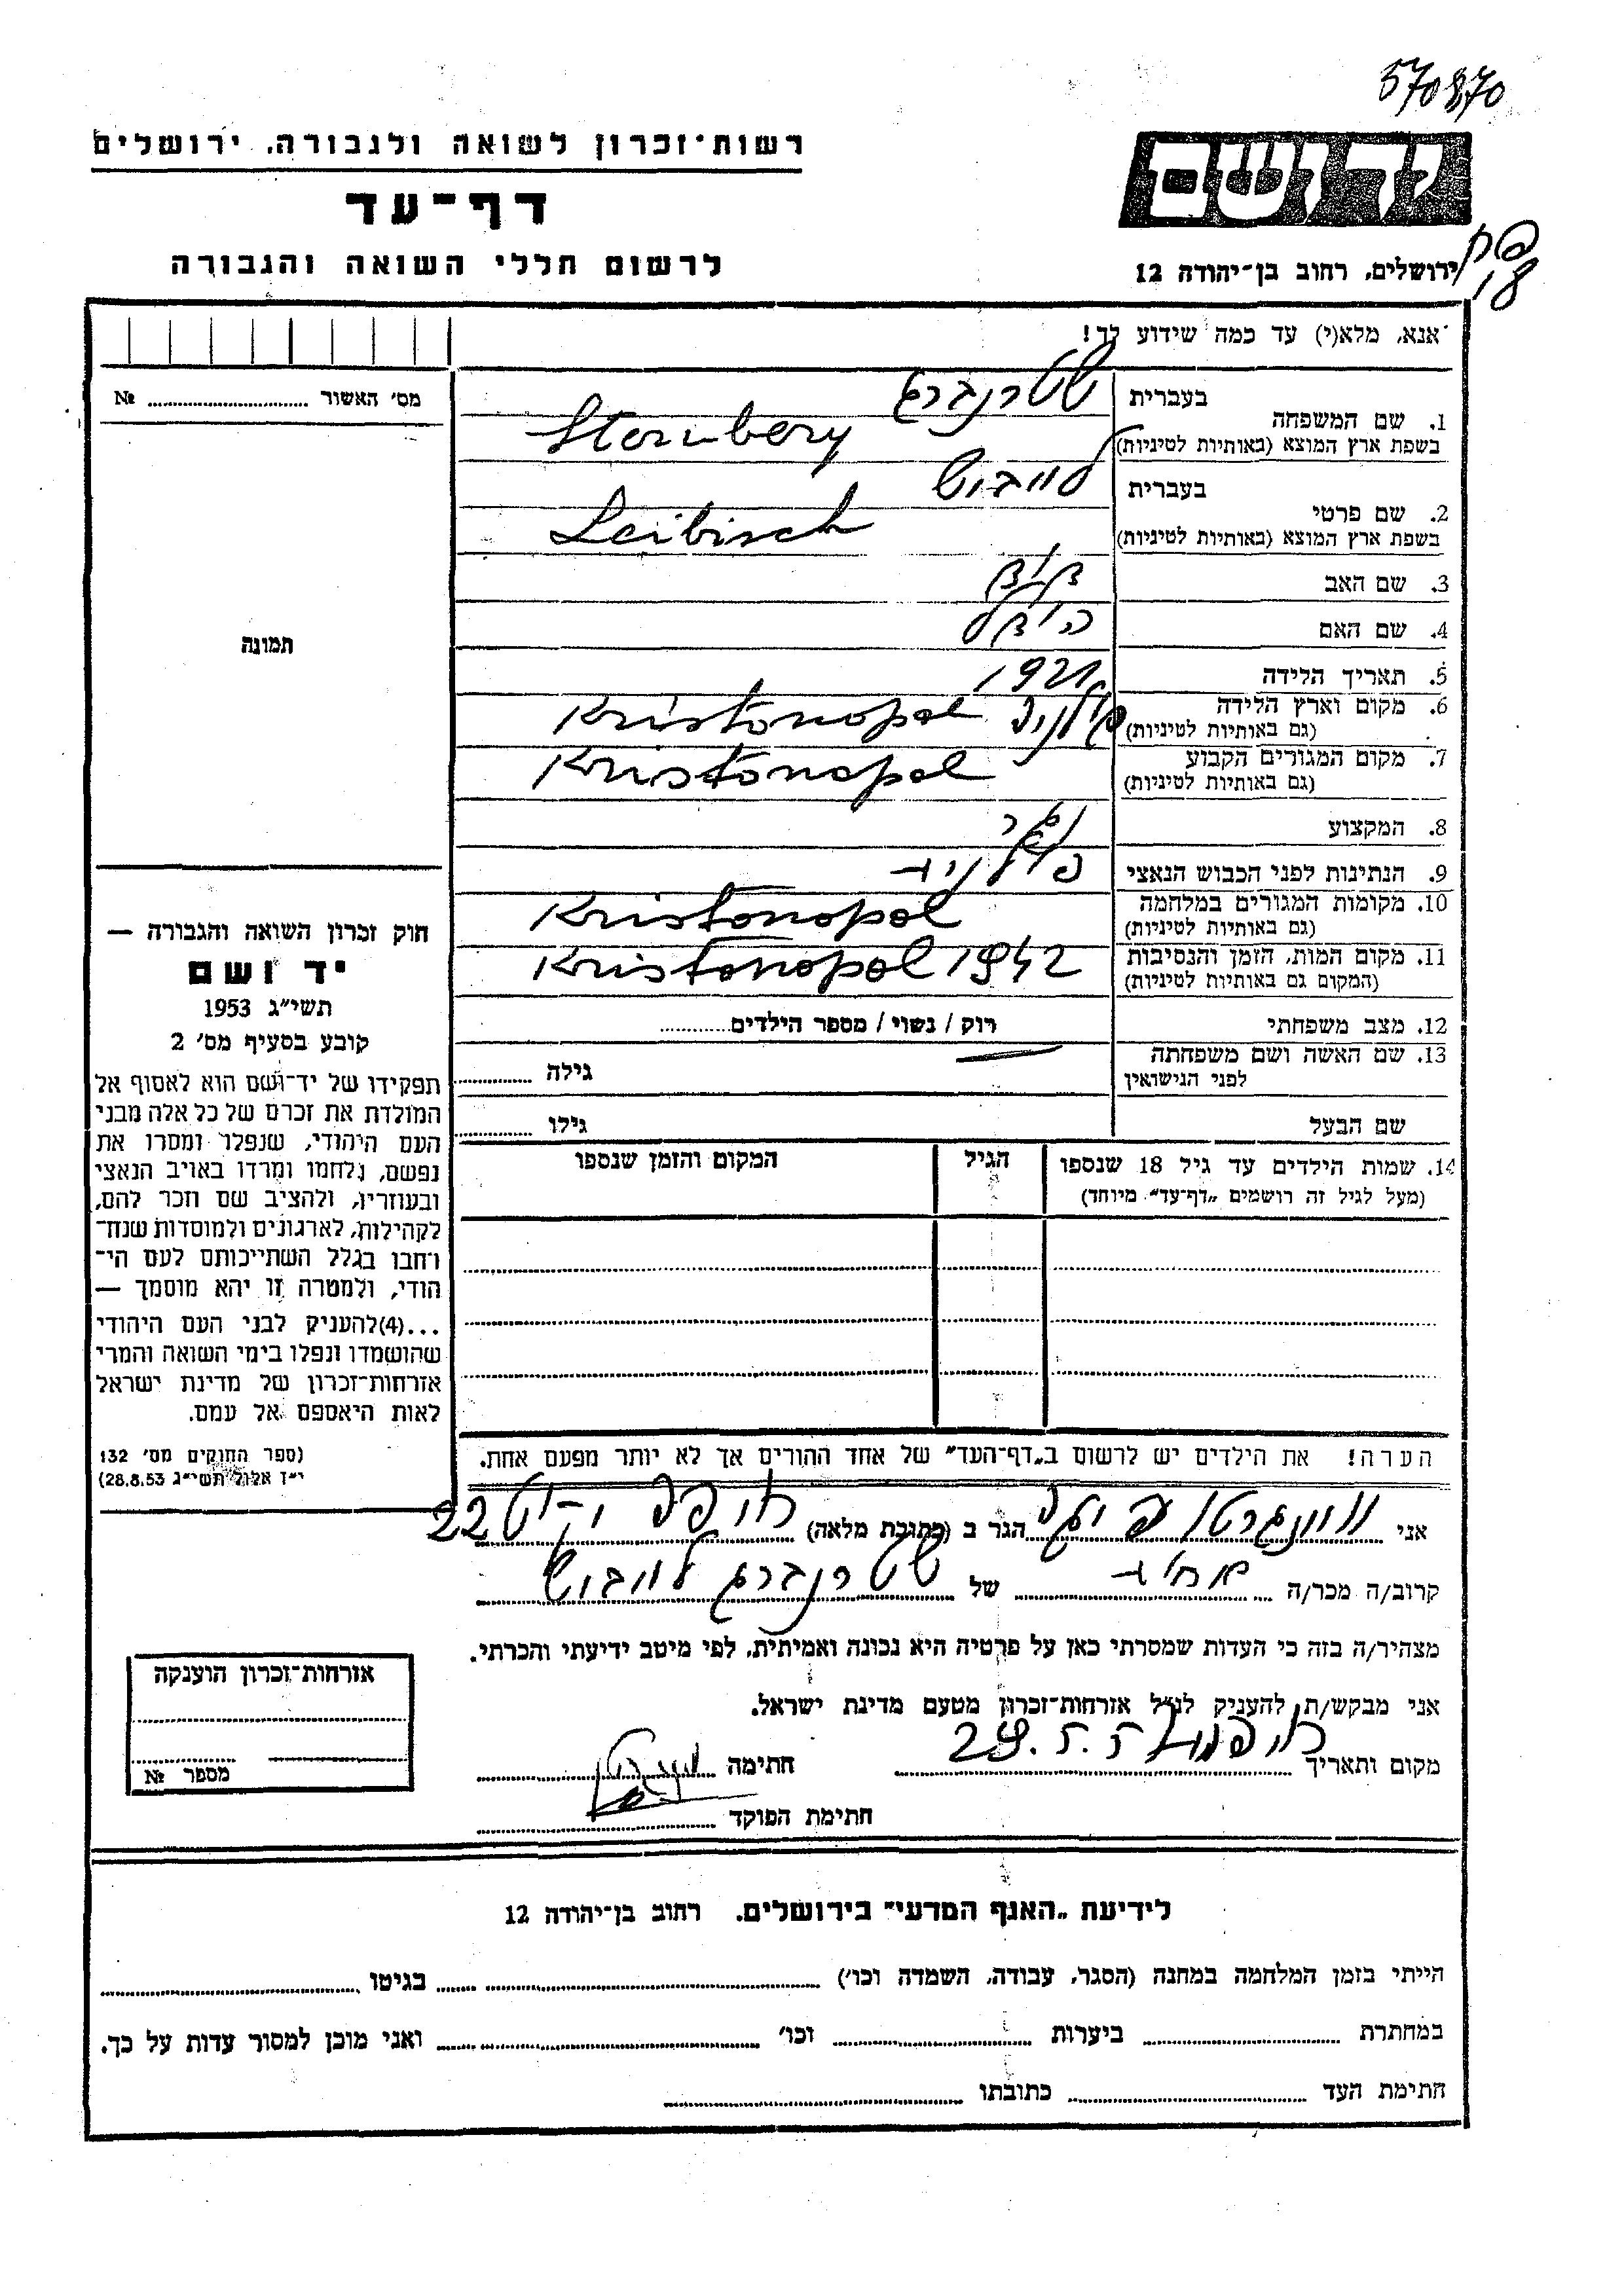 570870
רשות־זכרון לשואה ולגבורה, ירושלים
יד ושם
דף־עד
לרשום חללי השואה והגבורה
ירושלים, רחוב בן־יהודה 12
אנא, מלא(י) עד כמה שידוע לך!
מס' האשור № 
1. שם המשפחה בעברית שטרנברג
בשפת ארץ המוצא (באותיות לטיניות) Sternberg
2. שם פרטי בעברית לייביש
בשפת ארץ המוצא (באותיות לטיניות) Leibisch
3. שם האב
4. שם האם
5. תאריך הלידה 1921
6. מקום וארץ הלידה (גם באותיות לטיניות) Kristonopol פולניה
7. מקום המגורים הקבוע (גם באותיות לטיניות) Kristonopol
8. המקצוע
9. הנתינות לפני הכבוש הנאצי פולנית
10. מקומות המגורים במלחמה (גם באותיות לטיניות) Kristonopol
11. מקום המות, הזמן והנסיבות (המקום גם באותיות לטיניות) Kristonopol 1942
12. מצב משפחתי רווק / נשוי / מספר הילדים
13. שם האשה ושם משפחתה לפני הנישואין גילה
שם הבעל גילו
14. שמות הילדים עד גיל 18 שנספו הגיל המקום והזמן שנספו
(מעל לגיל זה רושמים „דף־עד" מיוחד)
תמונה
חוק זכרון השואה והגבורה —
יד ושם
תשי"ג 1953
קובע בסעיף מס' 2
תפקידו של יד־ושם הוא לאסוף אל
המולדת את זכרם של כל אלה מבני
העם היהודי, שנפלו ומסרו את
נפשם, נלחמו ומרדו באויב הנאצי
ובעוזריו, ולהציב שם וזכר להם,
לקהילות, לארגונים ולמוסדות שנח־
רחבו בגלל השתייכותם לעם הי־
הודי, ולמטרה זו יהא מוסמך —
...(4) להעניק לבני העם היהודי
שהושמדו ונפלו בימי השואה והמרי
אזרחות־זכרון של מדינת ישראל
לאות היאספם אל עמם.
(ספר החוקים מס' 132
י"ז אלול תשי"ג 28.8.53)
הערה! את הילדים יש לרשום ב„דף־העד" של אחד ההורים אך לא יותר מפעם אחת.
אני הגר ב (כתובת מלאה) חיפה 22
קרוב/ה מכר/ה של שטרנברג לייביש
מצהיר/ה בזה כי העדות שמסרתי כאן על פרטיה היא נכונה ואמיתית, לפי מיטב ידיעתי והכרתי.
אני מבקש/ת להעניק לנ"ל אזרחות־זכרון מטעם מדינת ישראל.
מקום ותאריך חיפה 29.5.55 חתימה
חתימת הפוקד
אזרחות־זכרון הוענקה
מספר №
לידיעת „האגף המדעי" בירושלים, רחוב בן־יהודה 12
הייתי בזמן המלחמה במחנה (הסגר, עבודה, השמדה וכו') בגיטו
במחתרת ביערות וכו' ואני מוכן למסור עדות על כך.
חתימת העד כתובתו